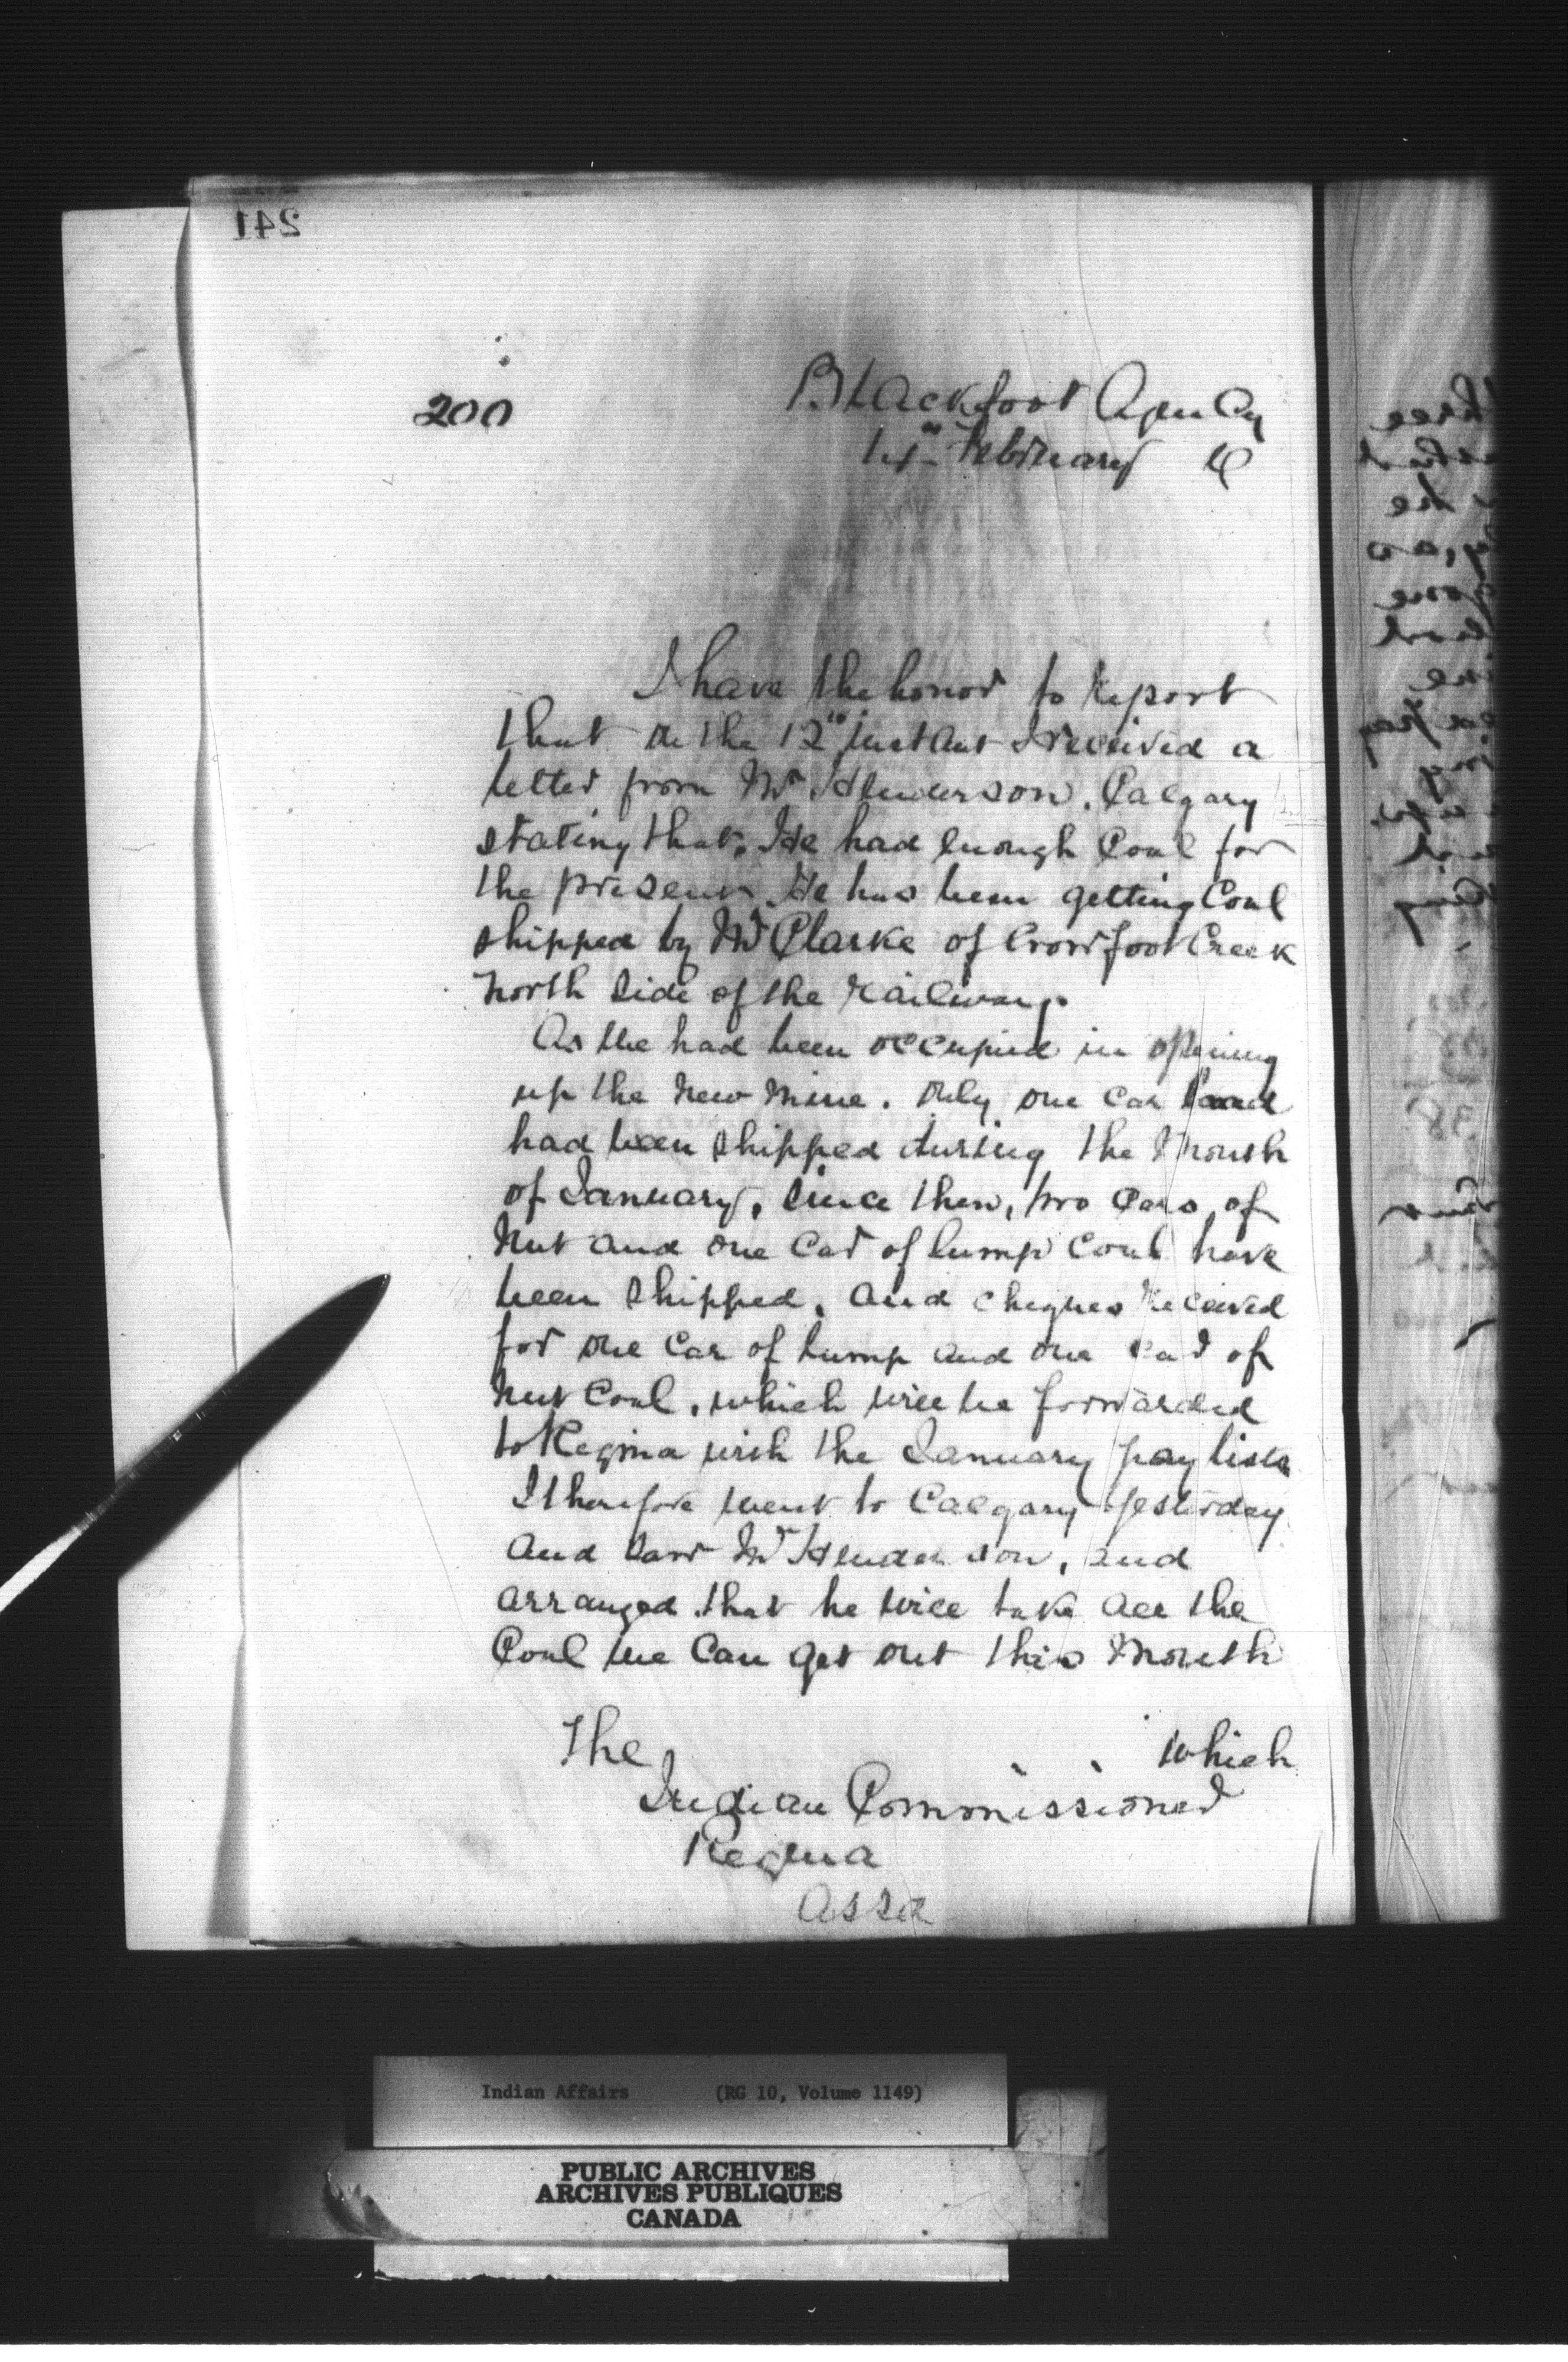 241
200
Blackfoot Agency
February
I have the honor to report
that on the 12th instant I received a
letter from Mr Henderson, Calgary
stating that, He had enough Coal for
the present. He has been getting Coal
shipped by Mr Clarke of Crowfoot Creek
North side of the railway.
As we had been occupied in opening
up the New Mine. Only one car
had been shipped during the Month
of January, since then, two Cars of
Nut and one Car of lump Coal have
been shipped, and cheques received
for one Car of lump and one Car of
Nut Coal, which will be forwarded
to Regina with the January pay lists
I therefore went to Calgary yesterday
and saw Mr Henderson, and
arranged that he will take all the
Coal we can get out this Month
which
The
Indian Commissioner
Regina
Assa
Indian Affairs (RG 10, Volume 1149)
PUBLIC ARCHIVES
ARCHIVES PUBLIQUES
CANADA